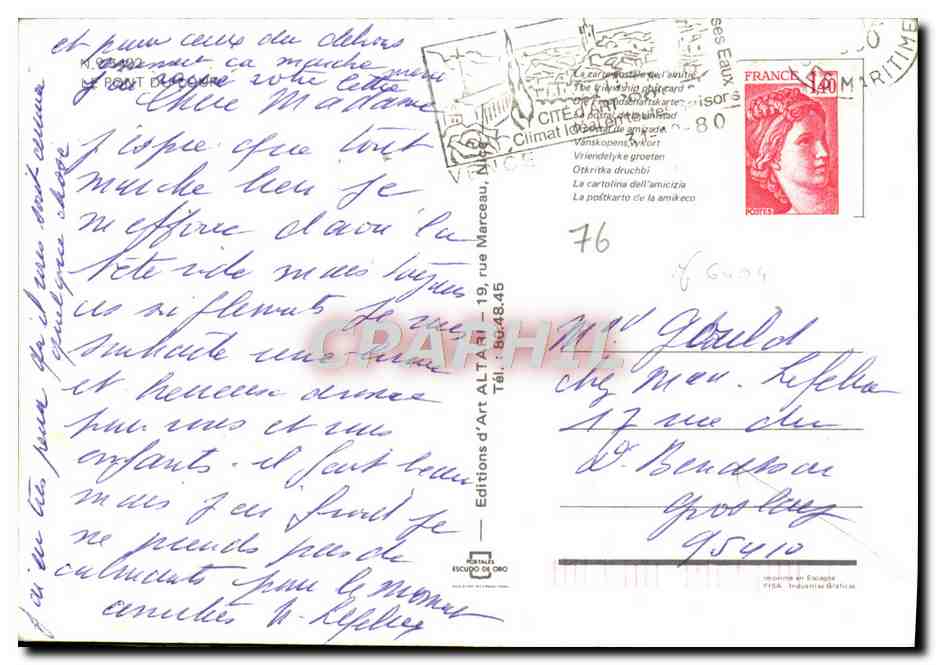 et pour ceux du dehors
ça marche merci
votre lettre
N.
LE PONT DU LOUP
Chère Madame
j'espère que tout
marche bien je
m'efforce d'avoir la
tête vide mais toujours
ces sifflements je vous
souhaite une bonne
et heureuse année
pour vous et vos
enfants. il fait beau
mais j'ai froid je
ne prends pas de
calmants pour le moment
amitiés N. Lefebvre
j'ai eu très peur qu'il vous soit arrivé
quelque chose
— Editions d'Art ALTARI — 19, rue Marceau, Nice
Tél. : 80.48.45
VENCE
CITE D'ART
Climat idéal en toutes saisons
ses Eaux
80
MARITIMES
FRANCE 1,40
POSTES
La carte postale de l'amitié
The friendship postcard
Die Freundschaftskarte
La postal de la amistad
de amizade
Vanskapens vykort
Vriendelyke groeten
Otkritka druchbi
La cartolina dell'amicizia
La poŝtkarto de la amikeco
76
CPAPHIL
Gould
chez Mme Lefebvre
17 rue du
Dr.
Groslay
95410
POSTALES
ESCUDO DE ORO
Imprimé en Espagne
FISA - Industrias Gráficas